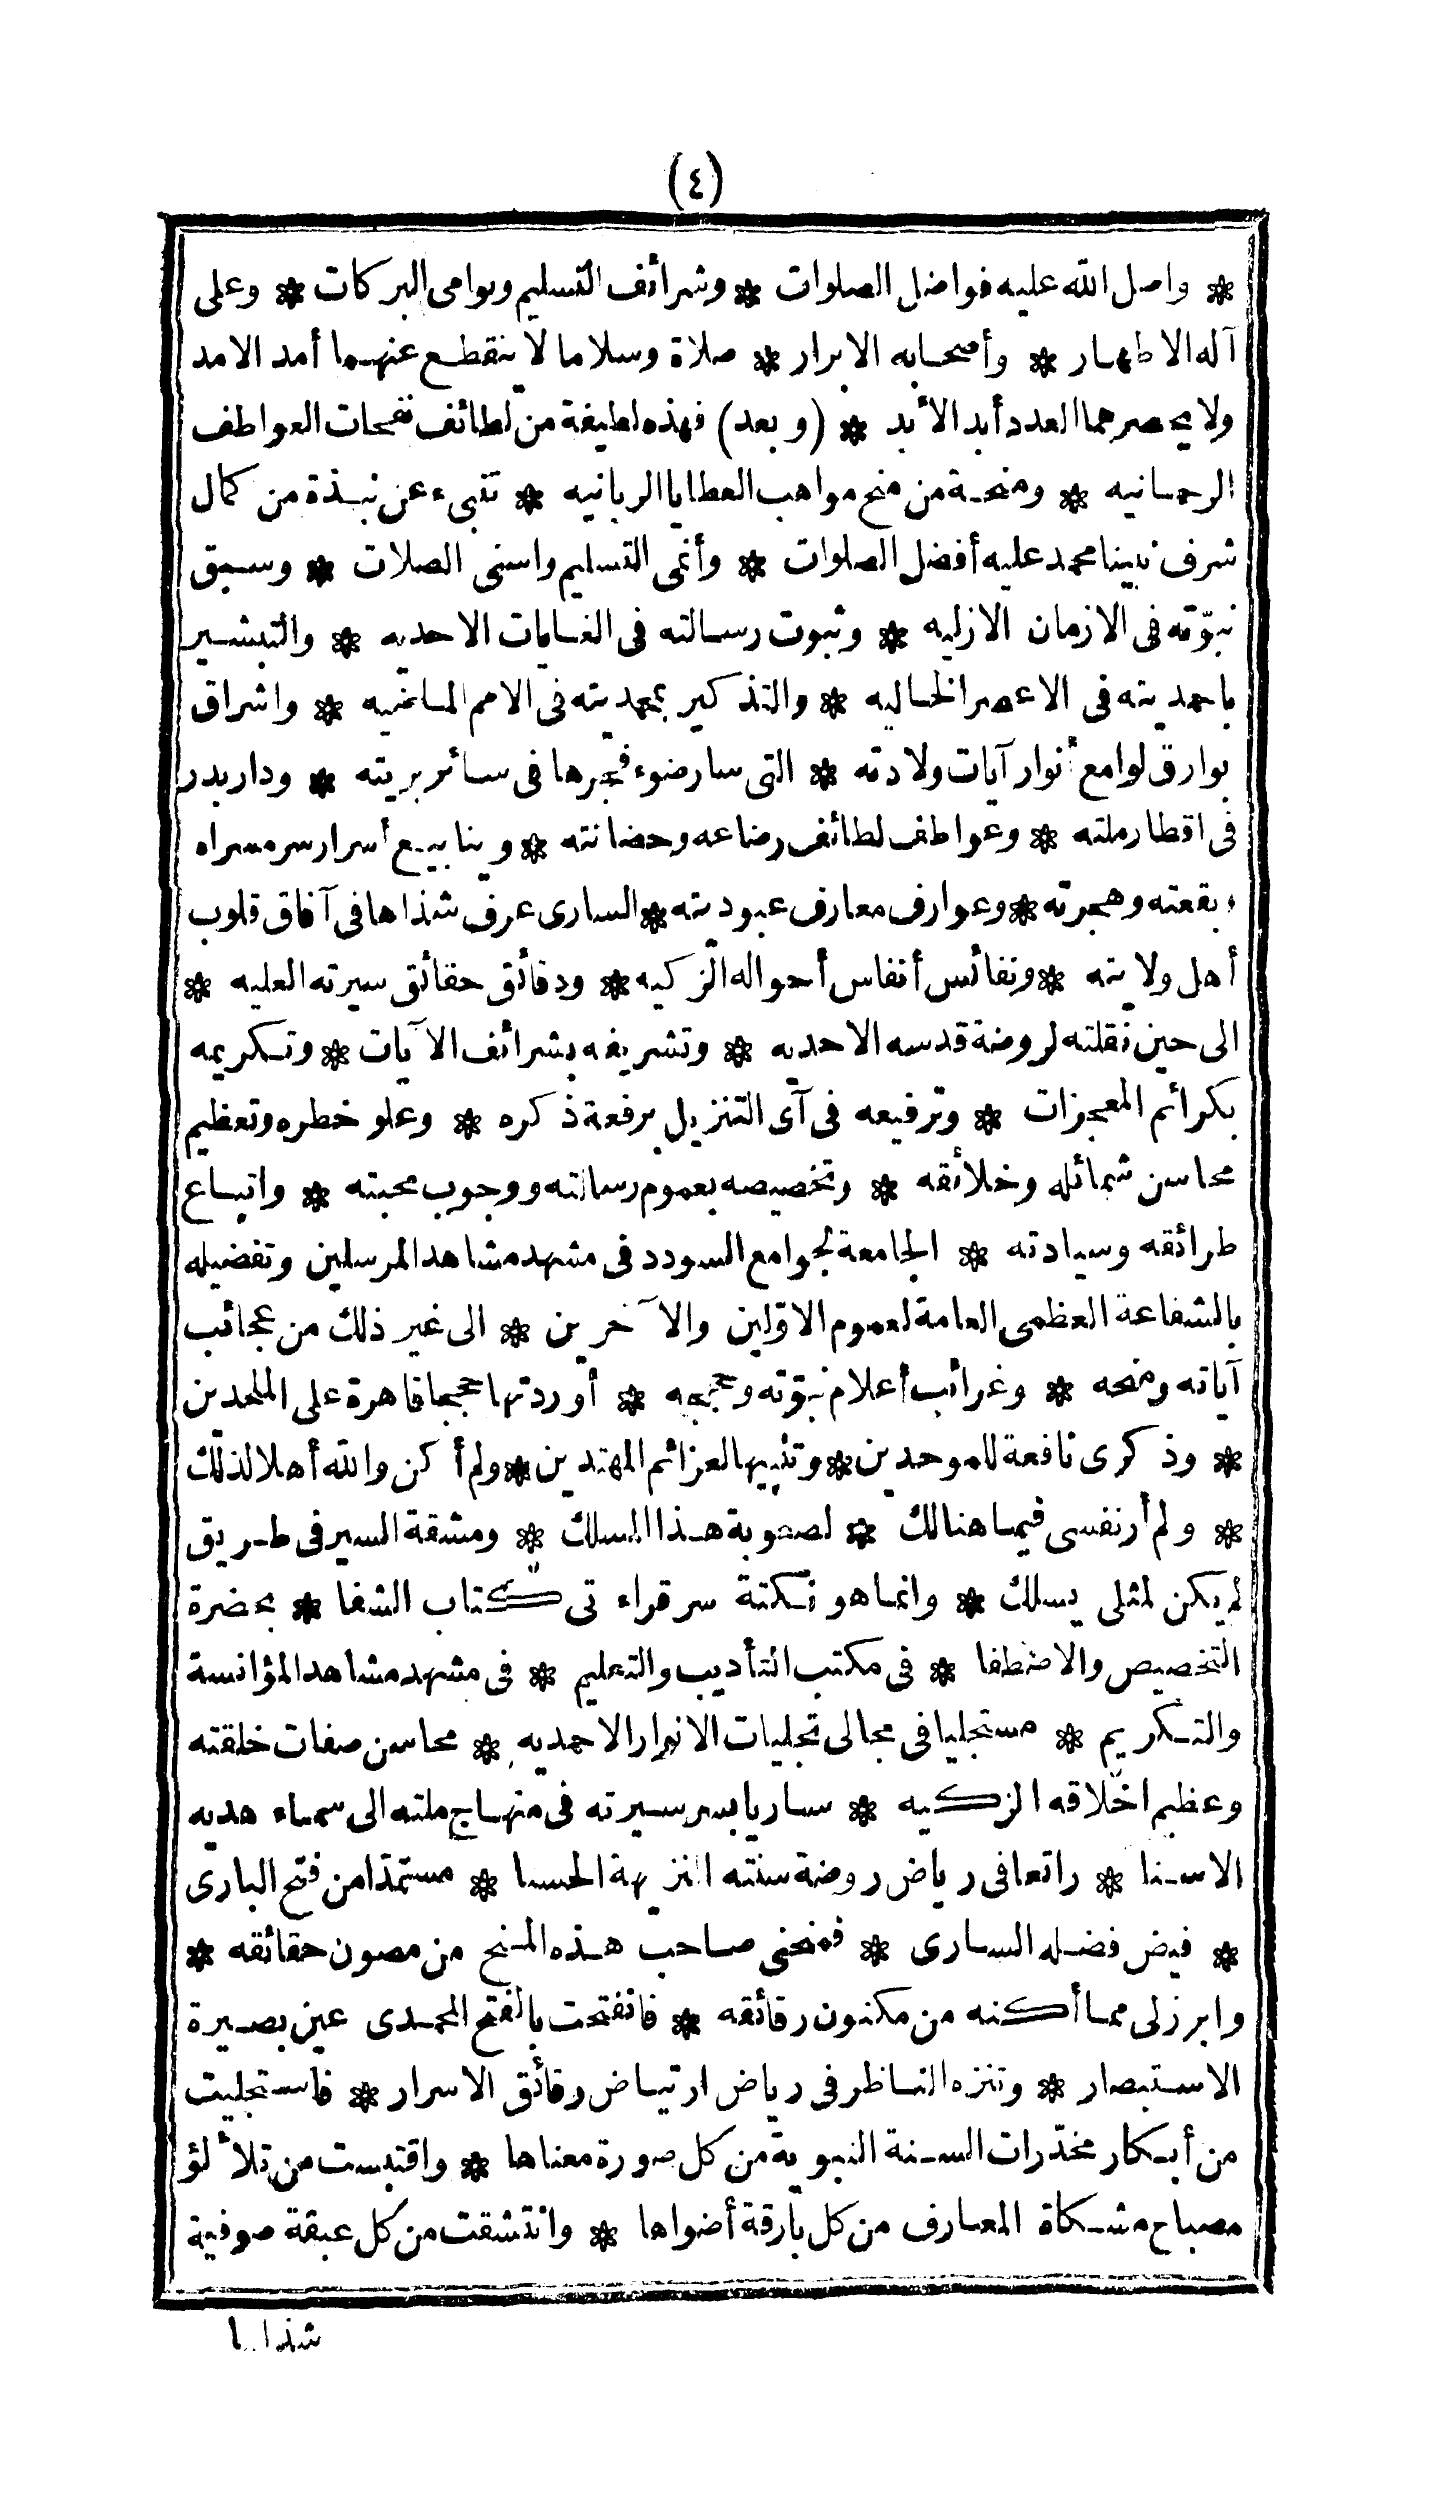 (٤)
* واصل الله عليه فواضل الصلوات * وشرائف التسليم ونوامى البركات * وعلى
آله الاطهار * وأصحابه الابرار * صلاة وسلاما لا ينقطع عنهما أمد الامد
ولا يحصرهما العدد أبد الأبد * (وبعد) فهذه لطيفة من لطائف نفحات العواطف
الرحمانيه * ومنحة من منح مواهب العطايا الربانيه * تنبىء عن نبذة من كمال
شرف نبينا محمد عليه أفضل الصلوات * وأنمى التسليم واسنى الصلات * وسبق
نبوّته فى الازمان الازليه * وثبوت رسالته فى الغايات الاحديه * والتبشير
باحمديته فى الاعصر الخاليه * والتذكير بمحمديته فى الامم الماضيه * واشراق
بوارق لوامع أنوار آيات ولادته * التى سار ضوء فجرها فى سائر بريته * ودار بدر
فى اقطار ملته * وعواطف لطائف رضاعه وحضانته * وينابيع أسرار سر مسراه
وبقعته وهجرته * وعوارف معارف عبوديته * السارى عرف شذاها فى آفاق قلوب
أهل ولايته * ونفائس أنفاس أحواله الزكيه * ودقائق حقائق سيرته العليه *
الى حين نقلته لروضة قدسه الاحديه * وتشريفه بشرائف الآيات * وتكريمه
بكرائم المعجزات * وترفيعه فى آى التنزيل برفعة ذكره * وعلو خطره وتعظيم
محاسن شمائله وخلائقه * وتخصيصه بعموم رسالته ووجوب محبته * واتباع
طرائقه وسيادته * الجامعة لجوامع السودد فى مشهد مشاهد المرسلين وتفضيله
بالشفاعة العظمى العامة لعموم الاوّلين والآخرين * الى غير ذلك من عجائب
آياته ومنحه * وغرائب أعلام نبوّته وحججه * أوردتها حججا قاهرة على الملحدين
* وذكرى نافعة للموحدين * وتنبيها لعزائم المهتدين * ولم أكن والله أهلا لذلك
* ولم أر نفسى فيما هنالك * لصعوبة هذا المسلك * ومشقة السير فى طريق
لم يكن لمثلى يسلك * وانما هو نكتة سر قراءتى كتاب الشفا * بحضرة
التخصيص والاصطفا * فى مكتب التأديب والتعليم * فى مشهد مشاهد المؤانسة
والتكريم * مستجليا فى مجالى تجليات الانوار الاحمديه * محاسن صفات خلقته
وعظيم اخلاقه الزكيه * ساريا بسر سيرته فى منهاج ملته الى سماء هديه
الاسنا * راتعا فى رياض روضة سنته النزيهة الحسنا * مستمدّا من فتح البارى
* فيض فضله السارى * فمنحنى صاحب هذه المنح من مصون حقائقه *
وابرز لى مما أكنه من مكنون رقائقه * فانفتحت بالفتح المحمدى عين بصيرة
الاستبصار * وتنزه الناظر فى رياض ارتياض رقائق الاسرار * فاستجليت
من أبكار مخدّرات السنة النبوية من كل صورة معناها * واقتبست من تلألؤ
مصباح مشكاة المعارف من كل بارقة أضواها * وانتشقت من كل عبقة صوفية
شذاها